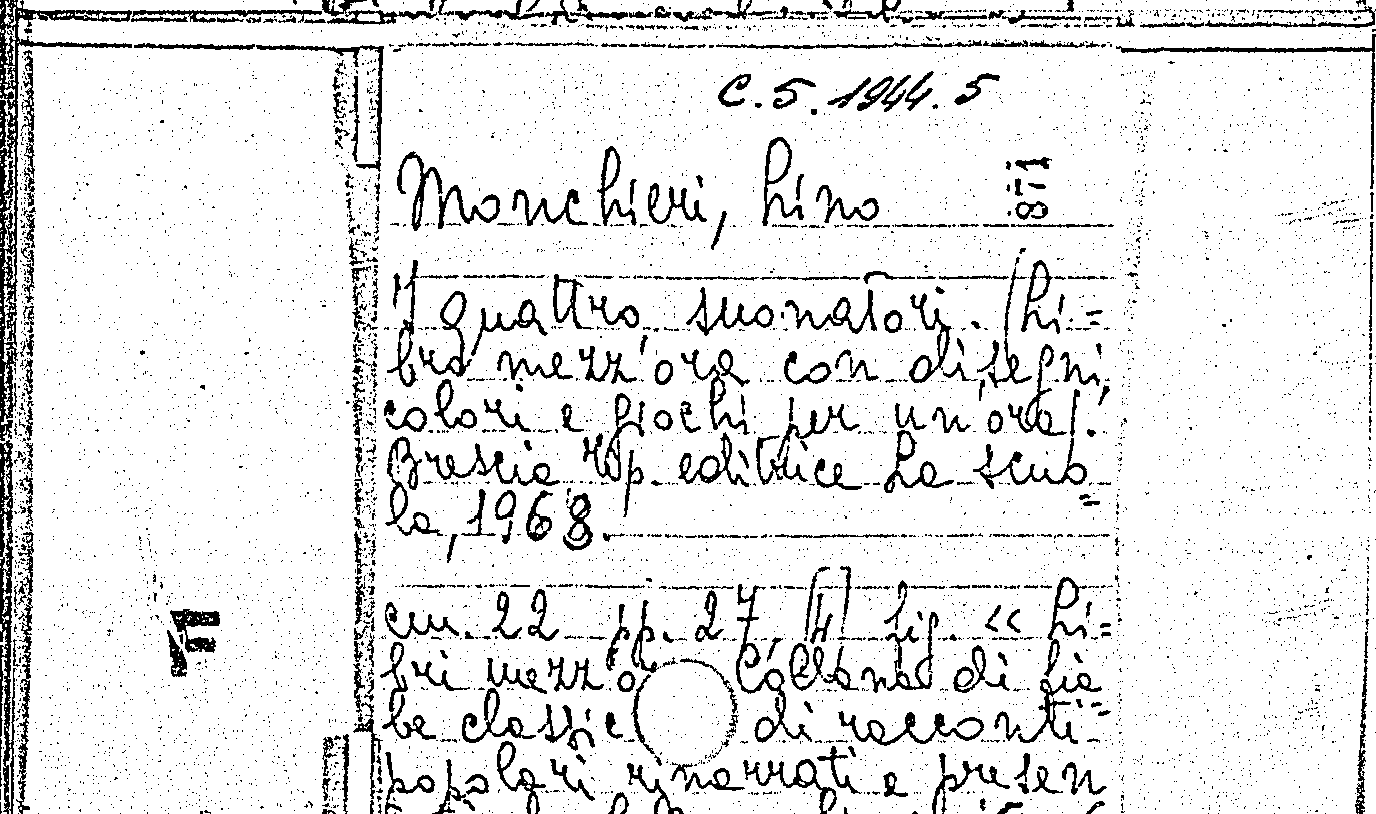 C.5.1944.5
Monchieri, Lino
871
I quattro suonatori. (Li=
bro mezz'ora con disegni,
colori e giochi per un'ora).
Brescia tip. editrice La scuo
=
la, 1968.
cm. 22 pp. 27, [4] fig. << Li=
bri mezz'o Collana di fia
be classic di racconti=
popolari rinarrati e presen